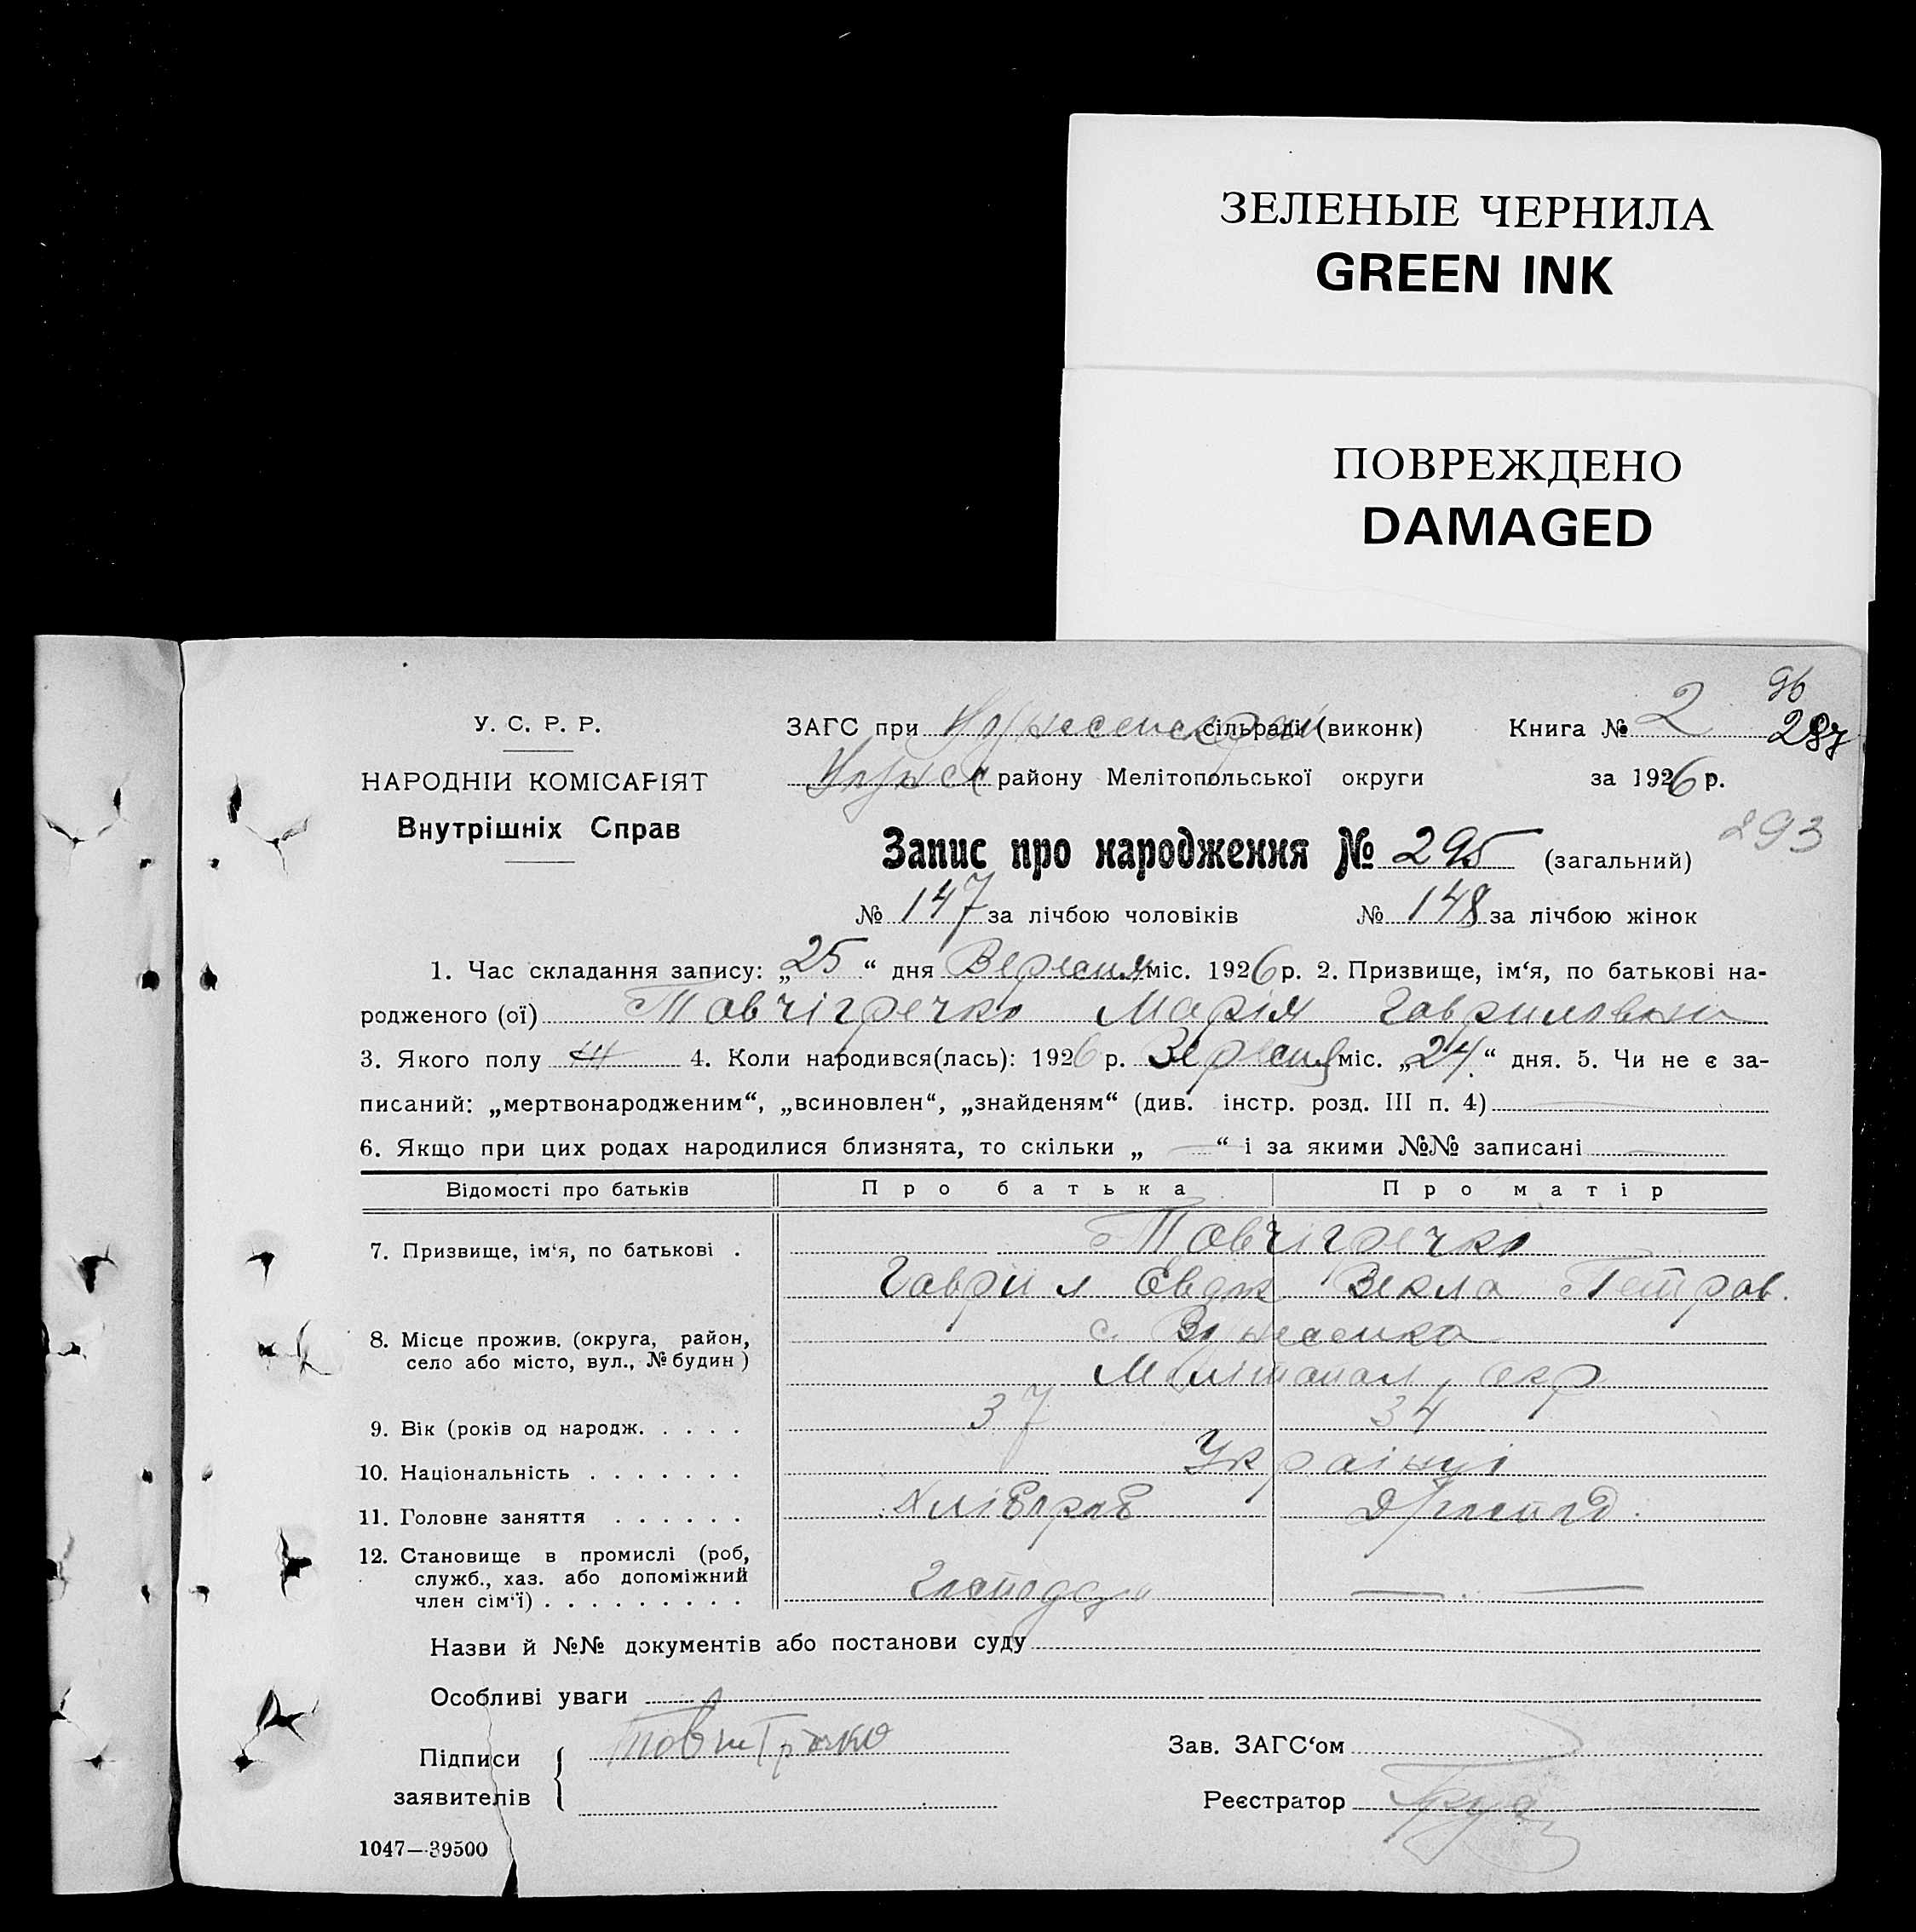 ЗЕЛЕНЫЕ ЧЕРНИЛА
GREEN INK
ПОВРЕЖДЕНО
DAMAGED
96
У. С. Р. Р. ЗАГС при сільраді (виконк) Книга № 2 287
НАРОДНІЙ КОМІСАРІЯТ району Мелітопольської округи за 1926 р.
Внутрішніх Справ 293
Запис про народження № 295 (загальний)
№ 147 за лічбою чоловіків № 148 за лічбою жінок
1. Час складання запису: „25“ дня Вересня міс. 1926 р. 2. Призвище, ім‘я, по батькові на-
родженого (ої) Товчігречко Марія Гавриловна
3. Якого полу 4. Коли народився(лась): 1926 р. Вересня міс. „24“ дня. 5. Чи не є за-
писаний: „мертвонародженим“, „всиновлен“, „знайденям“ (див. інстр. розд. III п. 4)
6. Якщо при цих родах народилися близнята, то скільки „ — “ і за якими №№ записані —
Відомості про батьків Про батька Про матір
7. Призвище, ім‘я, по батькові . Товчігречко
Гаврил Векла Петров.
8. Місце прожив. (округа, район, с. Вознесенка
село або місто, вул., № будин ) Мелітопол, окр
9. Вік (років од народж. . . . . 37 34
10. Національність . . . . . . . Українці
11. Головне заняття . . . . . . Хлібороб
12. Становище в промислі (роб,
служб., хаз. або допоміжний Господар
член сім‘ї) . . . . . . . . .
Назви й №№ документів або постанови суду
Особливі уваги
Підписи Зав. ЗАГС‘ом
заявителів Реєстратор
1047—39500